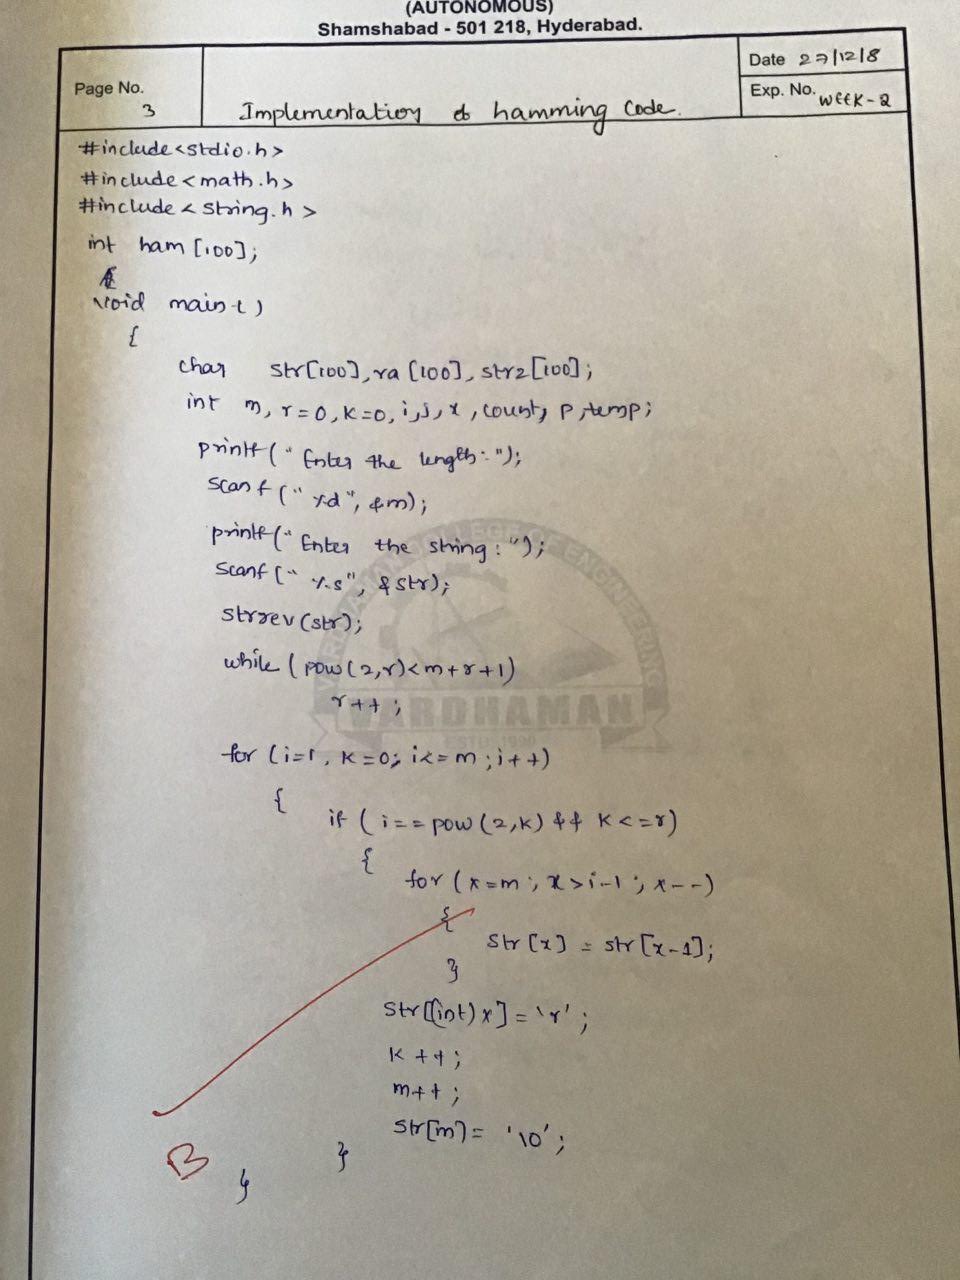 (AUTONOMOUS)
Shamshabad - 501 218, Hyderabad.
Page No.
3
Implementation of hamming Code.
Date 27/12/8
Exp. No. WEEK-2
#include<stdio.h>
#include<math.h>
#include<string.h>
int ham [100];
void main()
{
char str[100], ra[100], str2[100];
int m, r=0, k=0, i, j, x, count, p, temp;
printf("Enter the length:");
scanf("%d", &m);
printf("Enter the string:");
scanf("%s", &str);
strrev(str);
while (pow(2,r)<m+r+1)
r++;
for (i=1, k=0; i<=m; i++)
{
if (i==pow(2,k) && k<=r)
{
for (x=m; x>i-1; x--)
{
str[x] = str[x-1];
}
str[(int)x]='r';
k++;
m++;
str[m]= '\0';
}
}
B
VARDHAMAN COLLEGE OF ENGINEERING
VARDHAMAN
ESTD. 1999